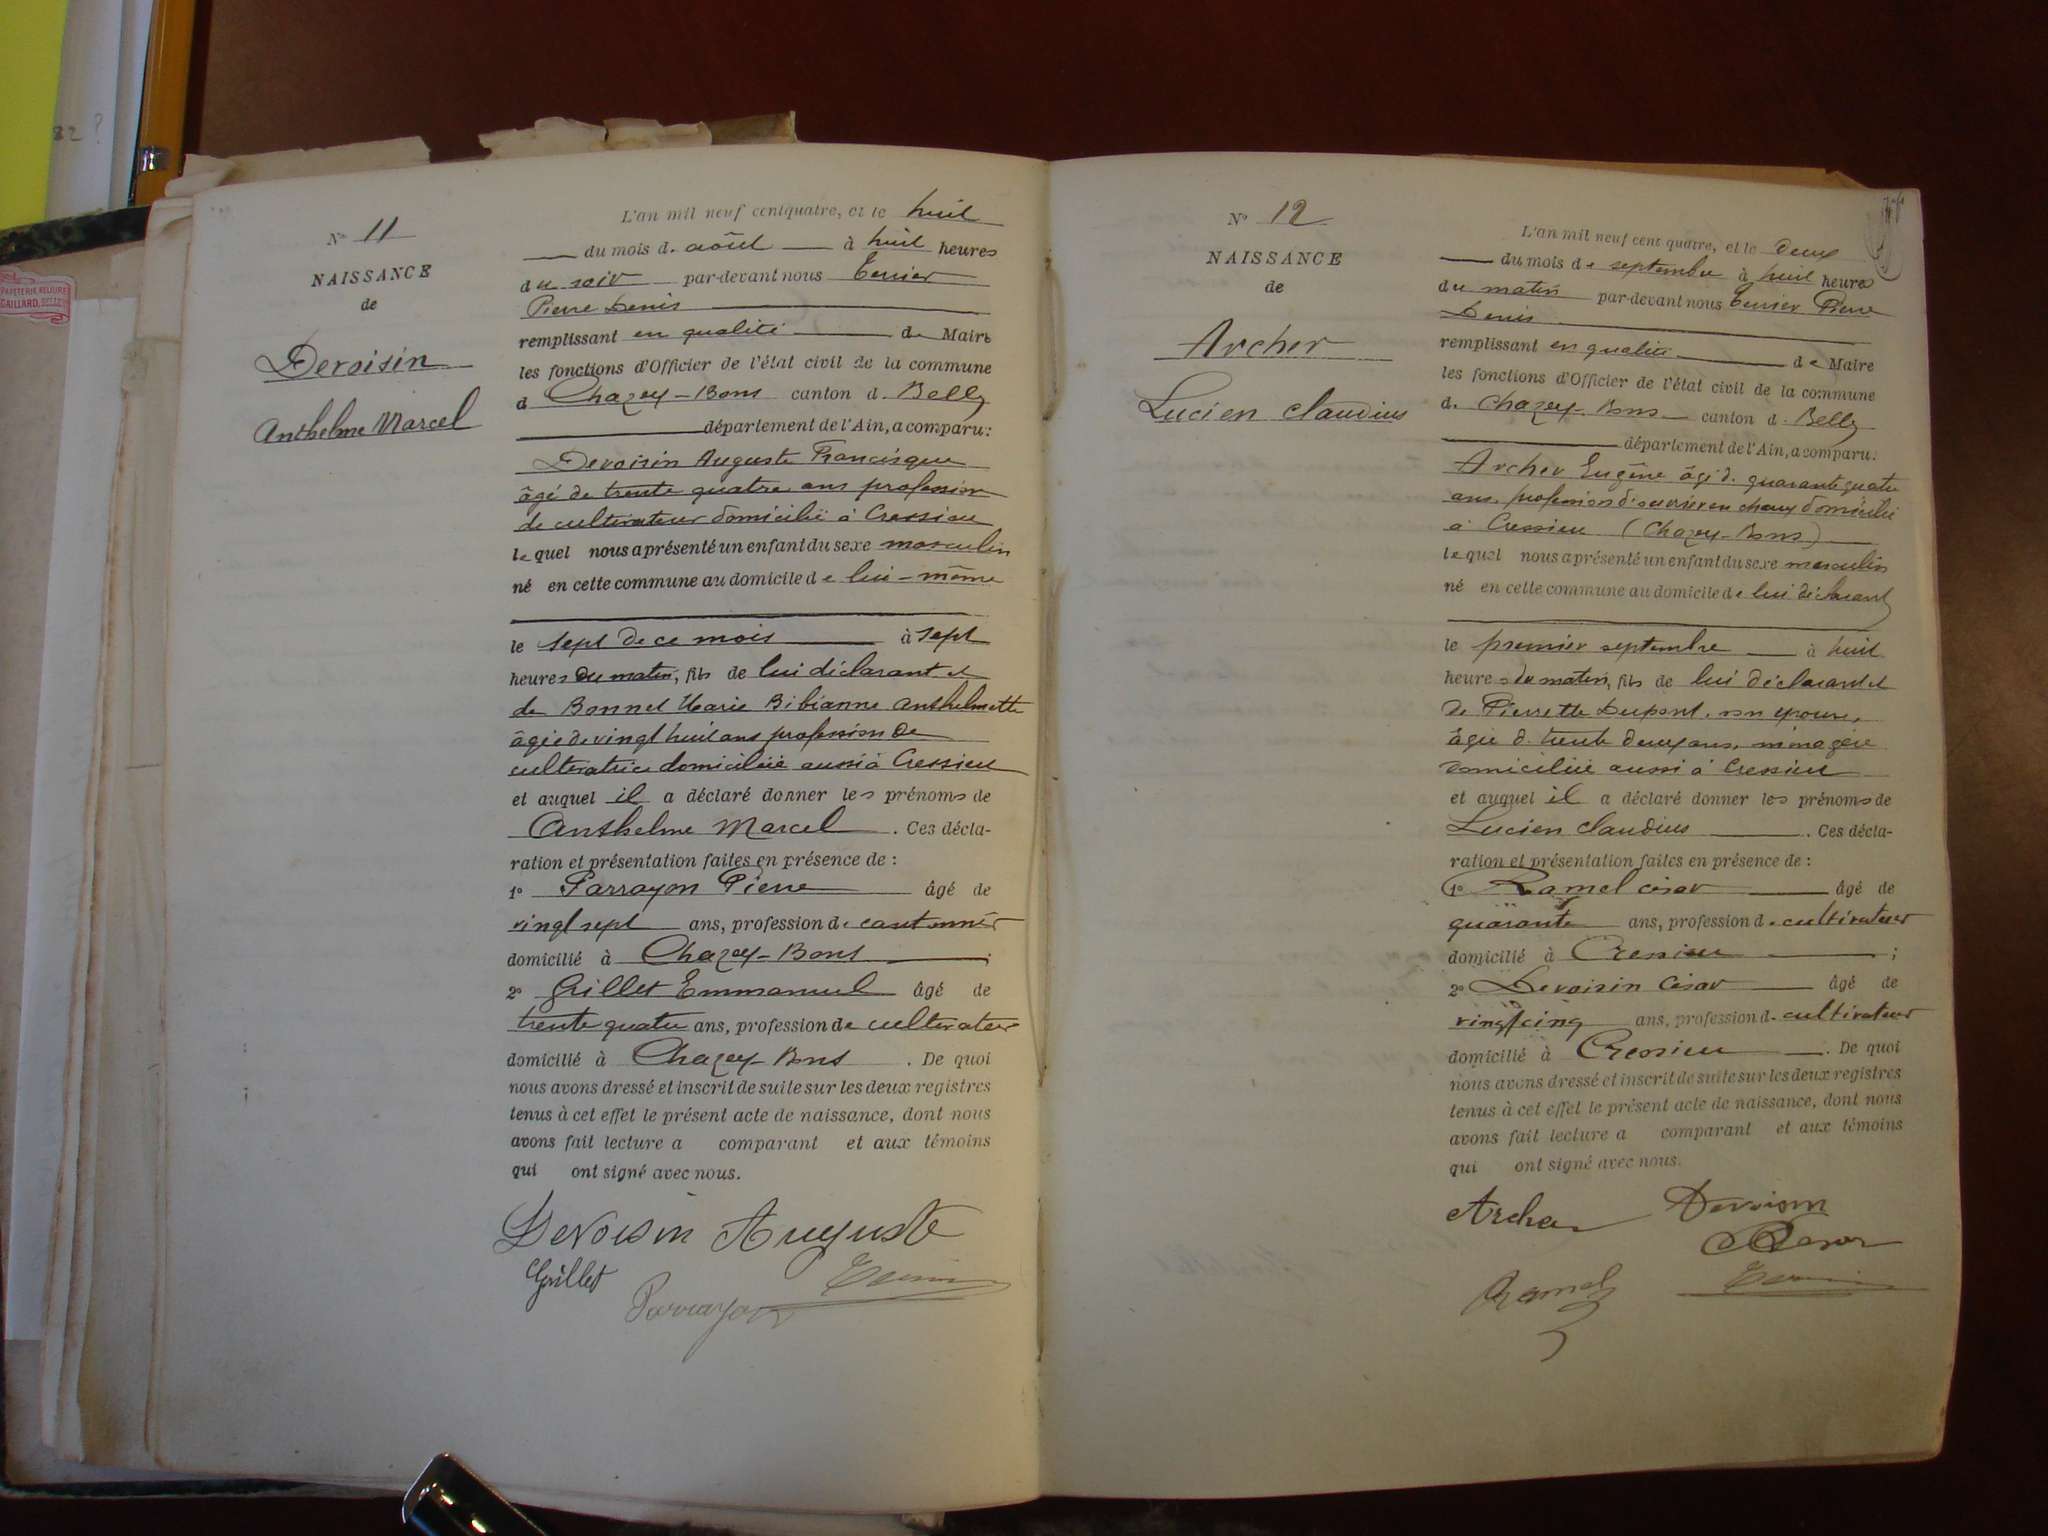 82 ?
PAPETERIE RELIURE
GAILLARD, BELLEY
N° 11
NAISSANCE
de
Devoisin
Anthelme Marcel
L'an mil neuf cent quatre, et le huit
du mois d. août à huit heures
du soir par-devant nous Terrier
Pierre Denis
remplissant en qualité de Maire
les fonctions d'Officier de l'état civil de la commune
d Chazey-Bons canton d. Belley
département de l'Ain, a comparu:
Devoisin Auguste Francisque
âgé de trente quatre ans profession
de cultivateur domicilié à Cressieu
lequel nous a présenté un enfant du sexe masculin
né en cette commune au domicile de lui-même
le sept de ce mois à sept
heures du matin, fils de lui déclarant et
de Bonnet Marie Bibianne Anthelmette
âgée de vingt huit ans profession de
cultivatrice domiciliée aussi à Cressieu
et auquel il a déclaré donner les prénoms de
Anthelme Marcel. Ces décla-
ration et présentation faites en présence de :
1° Parrayon Pierre âgé de
vingt sept ans, profession de cantonnier
domicilié à Chazey-Bons ;
2° Grillet Emmanuel âgé de
trente quatre ans, profession de cultivateur
domicilié à Chazey-Bons. De quoi
nous avons dressé et inscrit de suite sur les deux registres
tenus à cet effet le présent acte de naissance, dont nous
avons fait lecture a comparant et aux témoins
qui ont signé avec nous.
Devoisin Auguste
Grillet
Parrayon
Terrier
N° 12
NAISSANCE
de
Archer
Lucien Claudius
L'an mil neuf cent quatre, et le deux
du mois de septembre à huit heures
du matin par-devant nous Terrier Pierre
Denis
remplissant en qualité de Maire
les fonctions d'Officier de l'état civil de la commune
d. Chazey-Bons canton d. Belley
département de l'Ain, a comparu:
Archer Eugène âgé d. quarante quatre
ans, profession d'ouvrier en chaux domicilié
à Cressieu (Chazey-Bons)
lequel nous a présenté un enfant du sexe masculin
né en cette commune au domicile de lui déclarant
le premier septembre à huit
heures du matin, fils de lui déclarant et
de Pierrette Dupont, son épouse,
âgée d. trente deux ans, ménagère
domiciliée aussi à Cressieu
et auquel il a déclaré donner les prénoms de
Lucien Claudius. Ces décla-
ration et présentation faites en présence de :
1° Ramel César âgé de
quarante ans, profession d. cultivateur
domicilié à Cressieu ;
2° Devoisin César âgé de
vingt cinq ans, profession d. cultivateur
domicilié à Cressieu. De quoi
nous avons dressé et inscrit de suite sur les deux registres
tenus à cet effet le présent acte de naissance, dont nous
avons fait lecture a comparant et aux témoins
qui ont signé avec nous.
Archer Devoisin
César
Ramel
Terrier